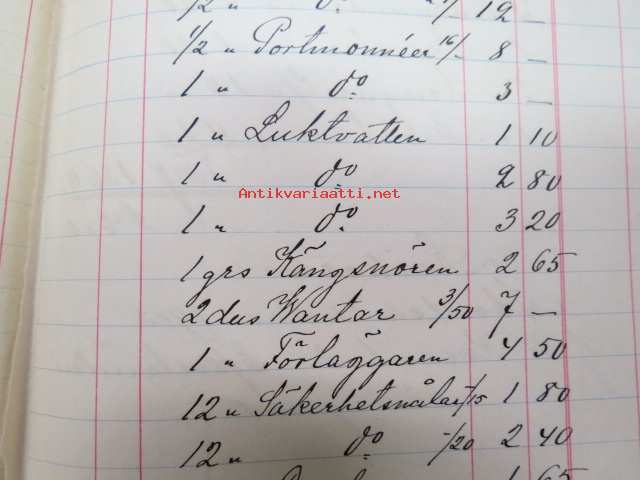 1/2 " do 12 —
1/2 " Portmonnéer 16/- 8 —
1 " do 3 —
1 " Luktvatten 1 10
1 " do 2 80
Antikvariaatti.net
1 " do 3 20
1 grs Kängsnören 2 65
2 dus Wantar 3/50 7 —
1 " Förläggaren 4 50
12 " Säkerhetsnålar -/15 1 80
12 " do -/20 2 40
1 65